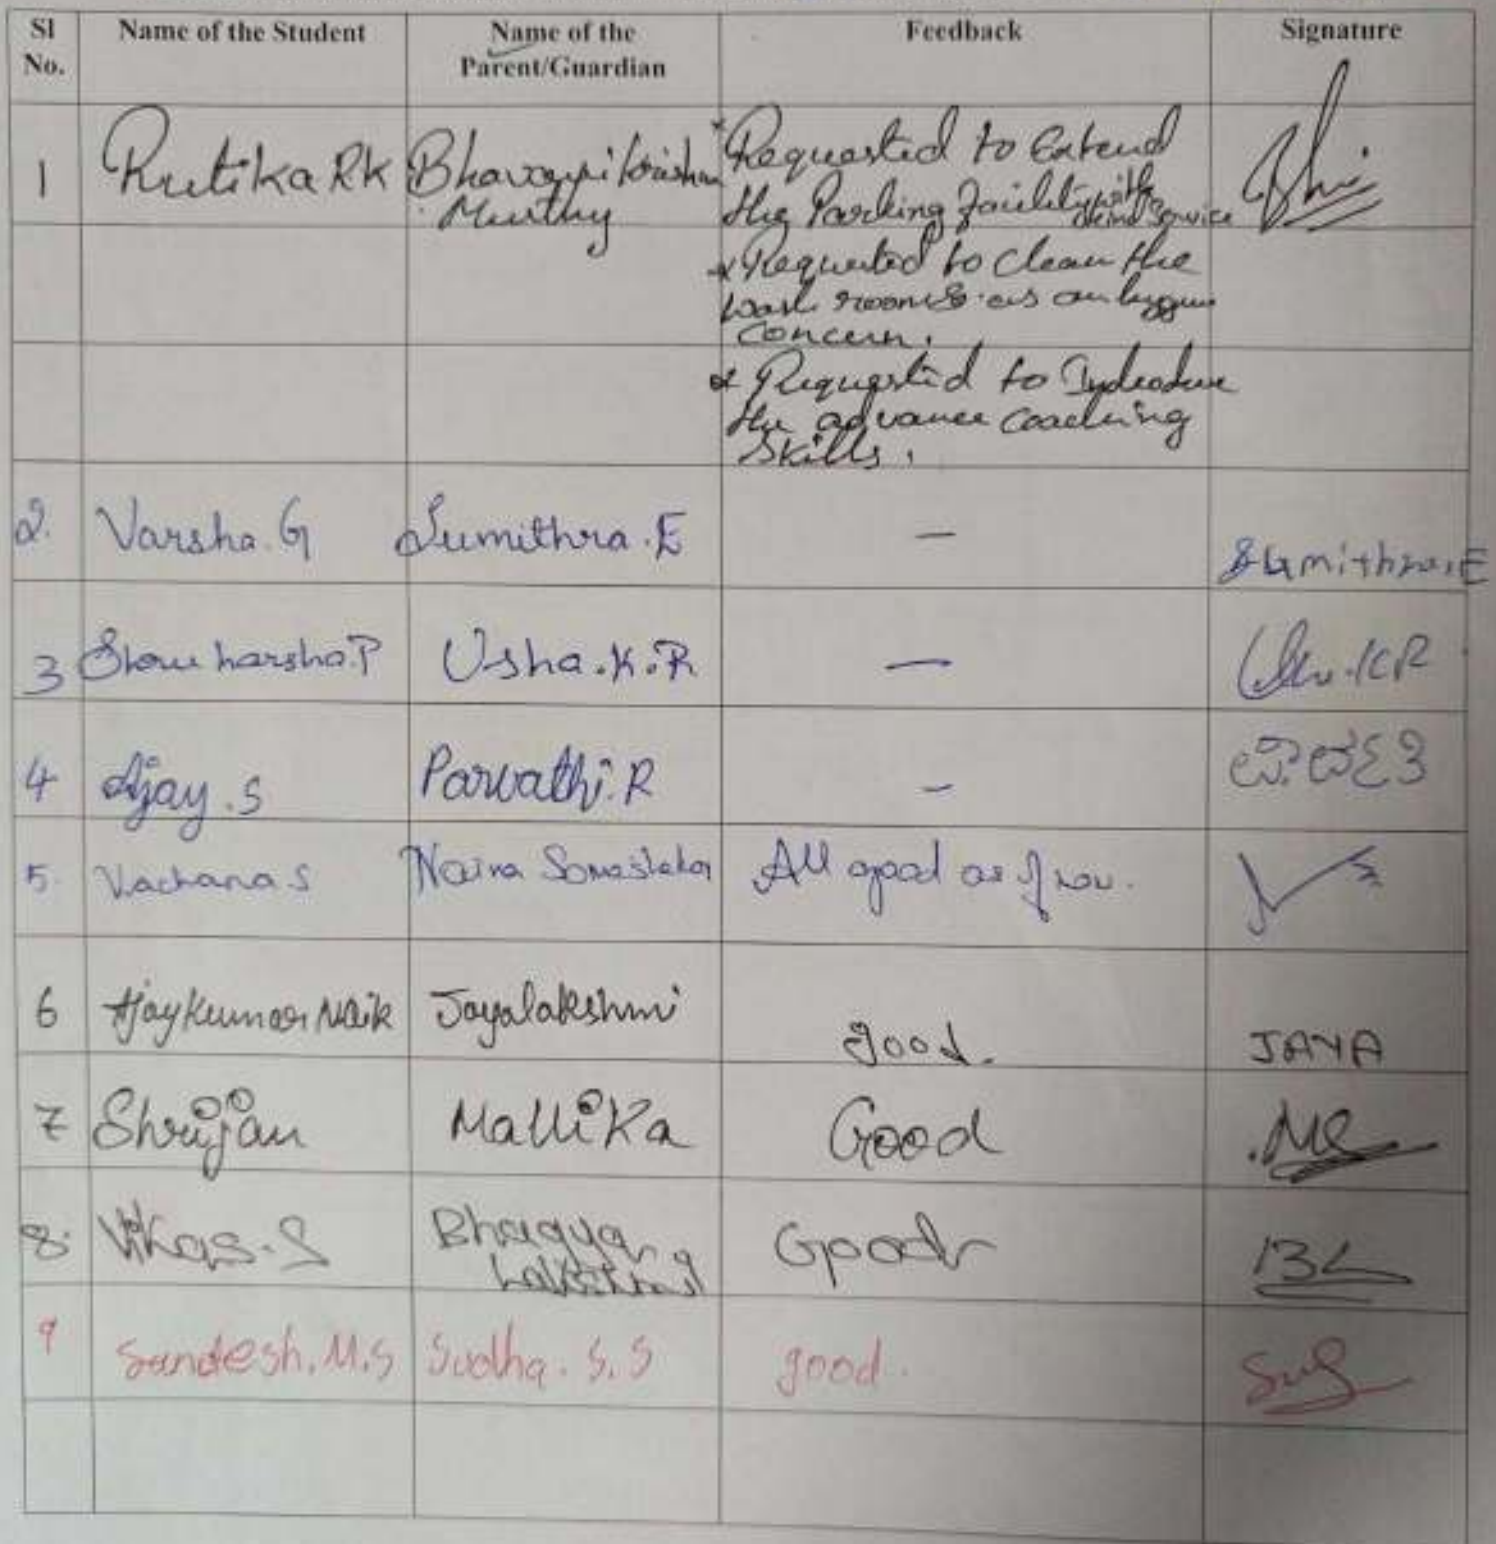 Sl No. Name of the Student Name of the Parent/Guardian Feedback Signature
1 Rutika RK Bhavayni Krishna Murthy * Requested to Extend
the Parking Facility with
service
* Requested to clean the
wash rooms as an
concern.
* Requested to
the advance coaching
skills.
2. Varsha. G Sumithra. E — Sumithra. E
3 harsha. P Usha. K. R — KR
4 Ajay. S Parvathi. R –
5. Vachana S Naina Somashekar All good as of now.
6 Ajay Kumar Naik Jayalakshmi good. JAYA
7 Shrijan Mallika Good
8. Vikas. S Bhagya Lakshmi Good BL
9 Sandesh. M. S Sudha. S. S good.